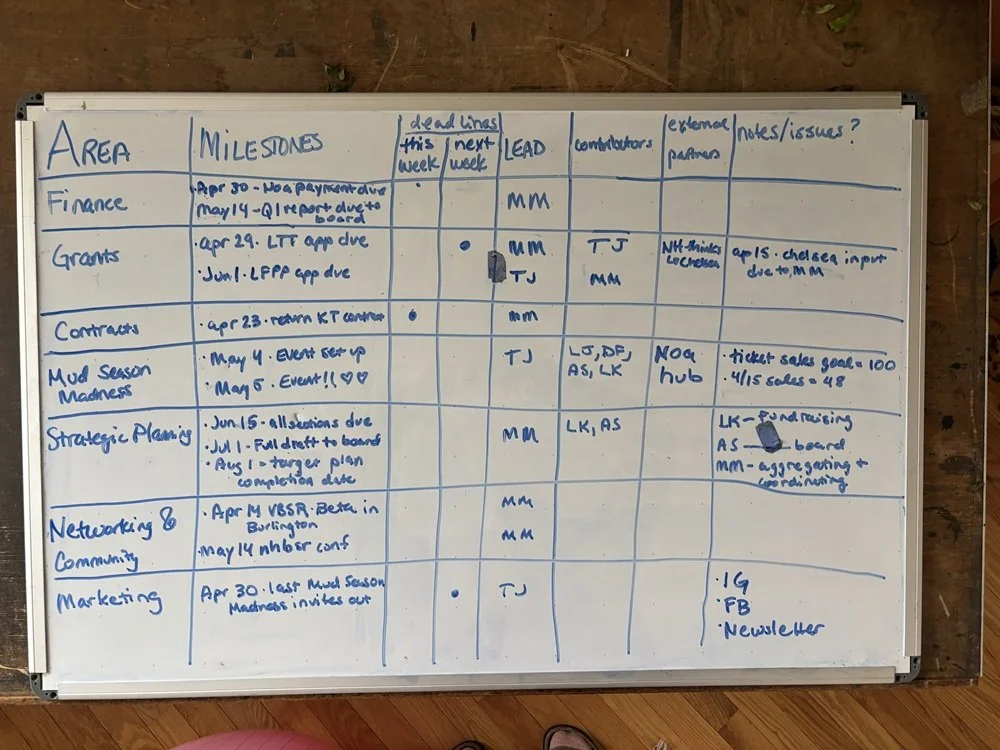 AREA
MILESTONES
deadlines
this week
next week
LEAD
contributors
external partners
notes/issues?
Finance
Apr 30 - Noa payment due
May 14 - Q1 report due to
board
MM
Grants
· apr 29 · LTT app due
· Jun 1 · LFPP app due
•
MM
TJ
TJ
MM
NH-thinks
Chelsea
ap 15 · chelsea input
due to MM
Contracts
· apr 23 · return KT contract
•
MM
Mud Season
Madness
· May 4 · Event set up
· May 5 · Event!! ♡♡
TJ
LJ, DF,
AS, LK
Noa
hub
· ticket sales goal = 100
· 4/15 sales = 48
Strategic Planning
· Jun 15 · all sections due
· Jul 1 · Full draft to board
· Aug 1 - target plan
completion date
MM
LK, AS
LK - Fundraising
AS - board
MM - aggregating +
coordinating
Networking &
Community
· Apr VBSR · Beta in
Burlington
· May 14 nhbsr conf
MM
MM
Marketing
Apr 30 · last Mud Season
Madness invites out
•
TJ
· IG
· FB
· Newsletter